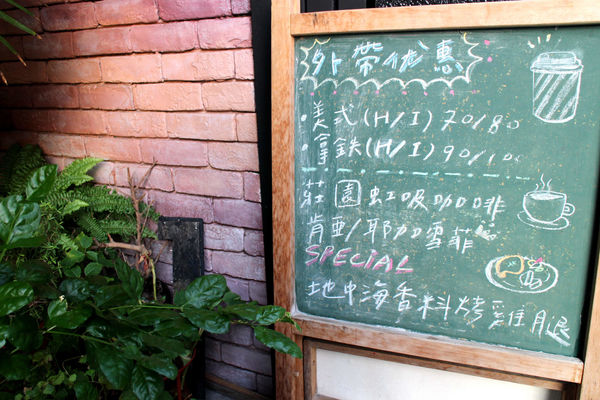 外帶优惠
·美式(H/I) 70/80
·拿鐵(H/I) 90/100
莊園虹吸咖啡
肯亞/耶加雪菲
SPECIAL
地中海香料烤雞腿